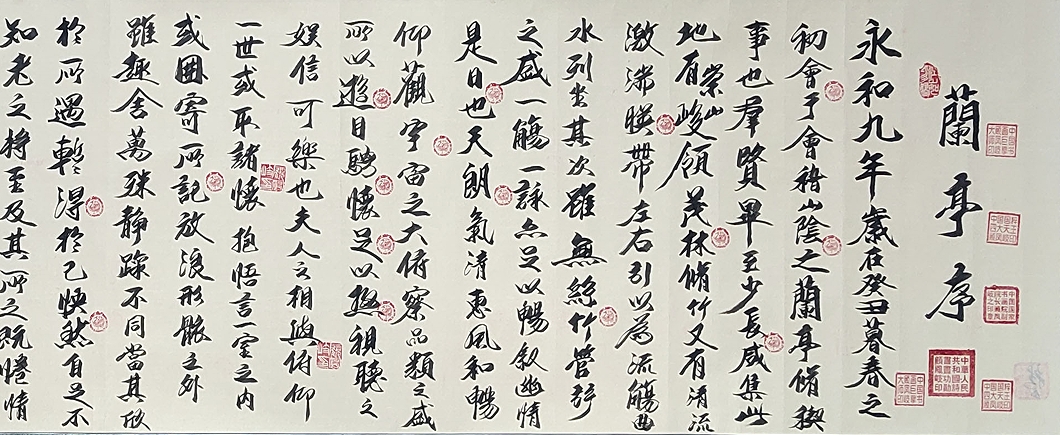 蘭亭序
永和九年歲在癸丑暮春之
初會于會稽山陰之蘭亭脩稧
事也羣賢畢至少長咸集此
地有崇山峻領茂林脩竹又有清流
激湍暎帶左右引以為流觴曲
水列坐其次雖無絲竹管弦
之盛一觴一詠亦足以暢敘幽情
是日也天朗氣清惠風和暢
仰觀宇宙之大俯察品類之盛
所以遊目騁懷足以極視聽之
娛信可樂也夫人之相與俯仰
一世或取諸懷抱悟言一室之內
或因寄所託放浪形骸之外
雖趣舍萬殊靜躁不同當其欣
於所遇暫得於己怏然自足不
知老之將至及其所之既惓情